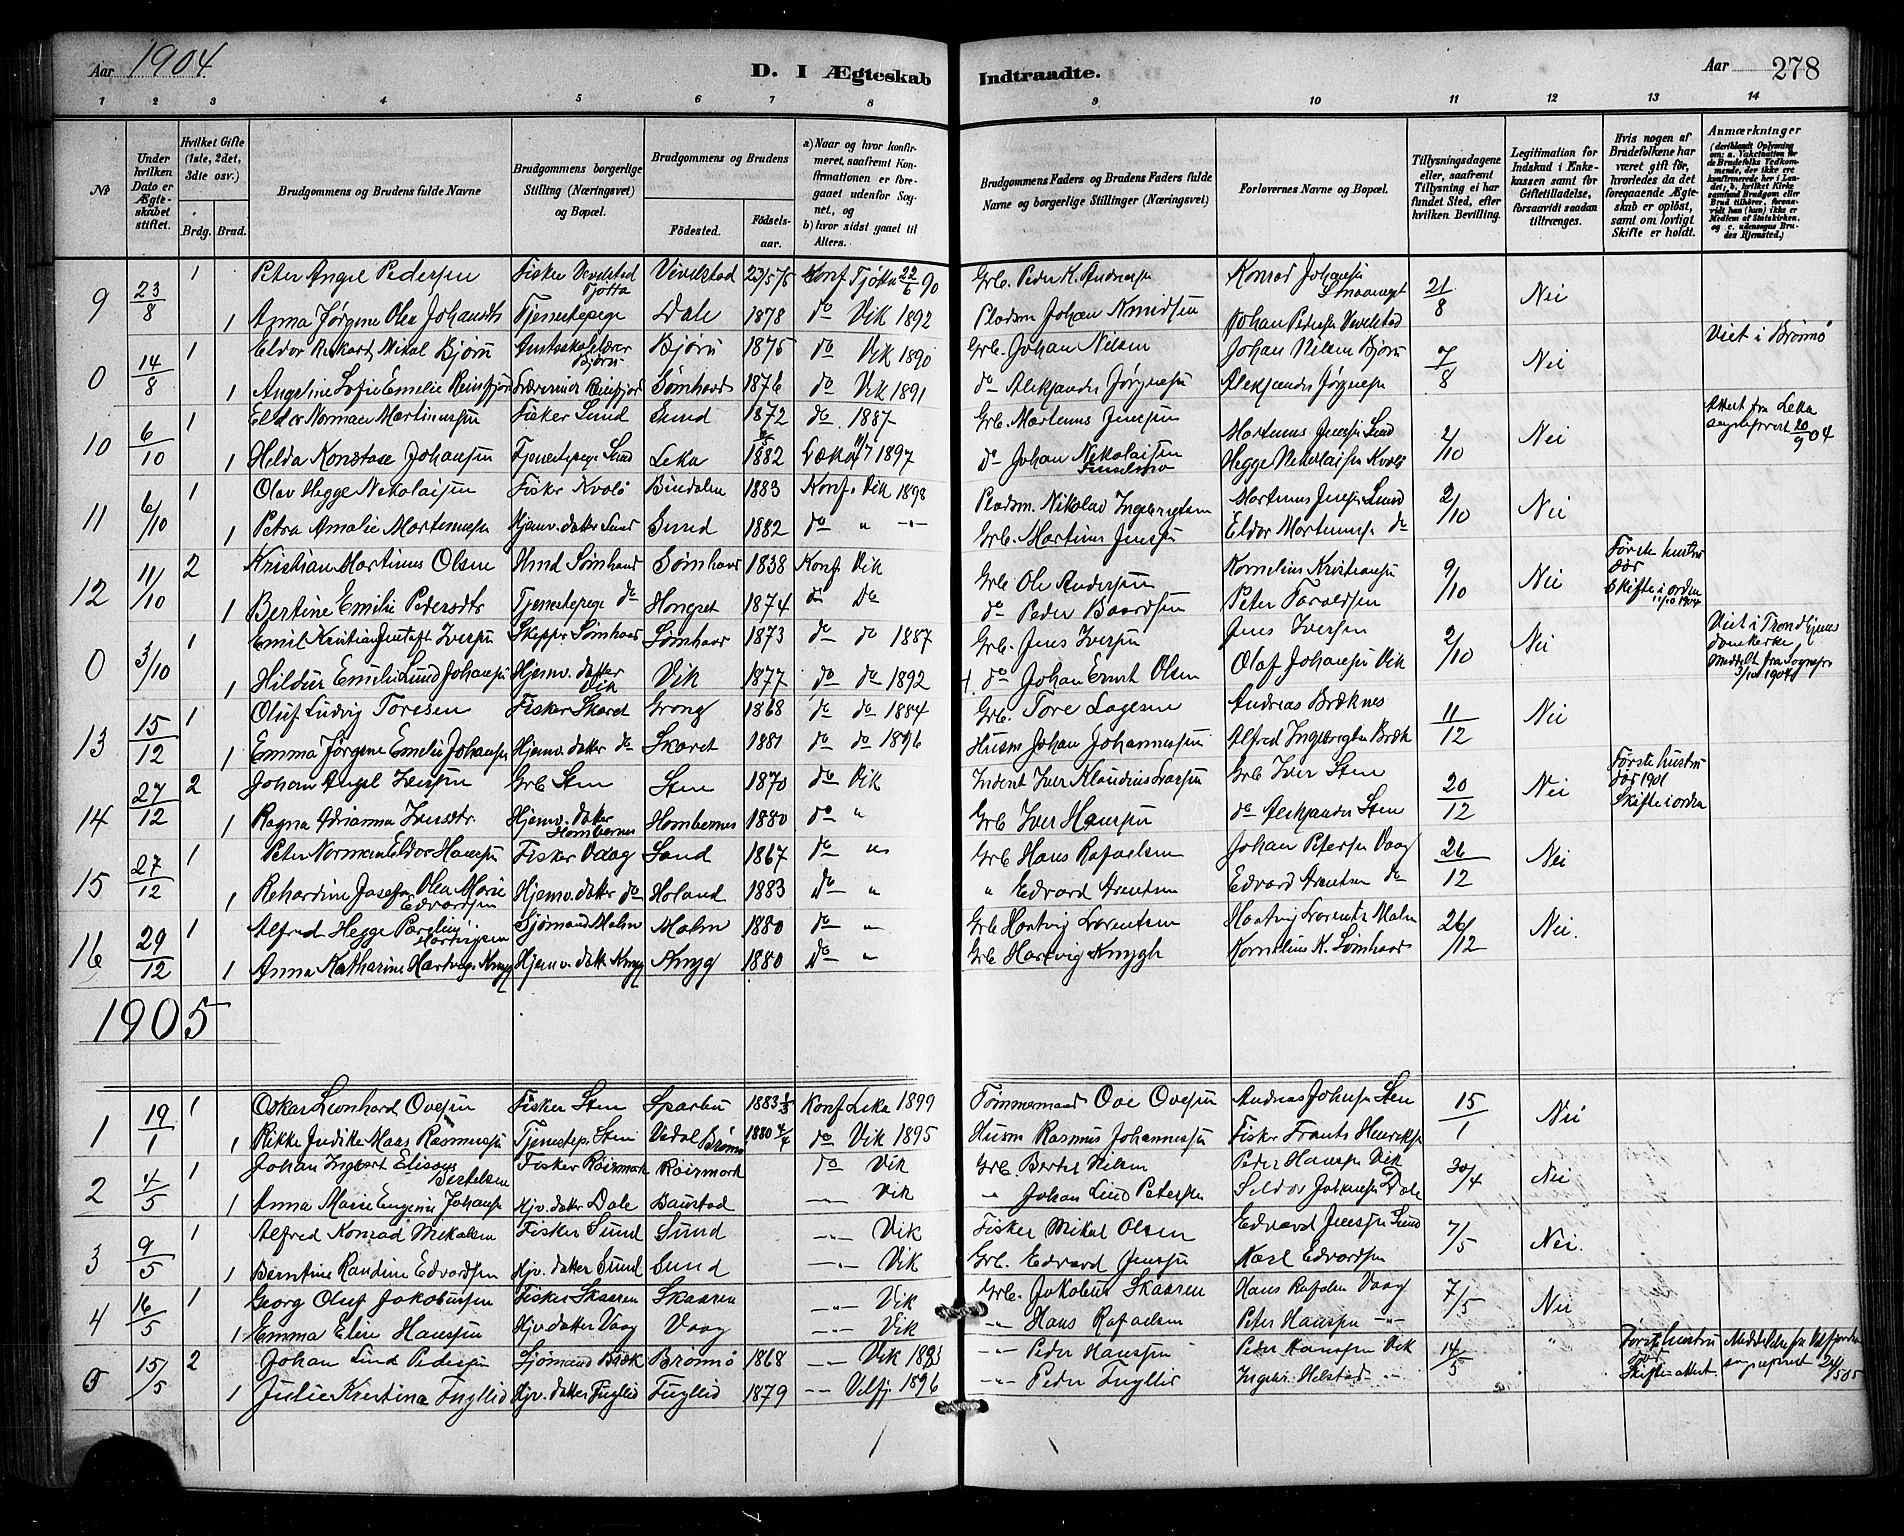 Aar 1904
D. I Ægteskab Indtraadte.
Aar 278
1 2 3 4 5 6 7 8 9 10 11 12 13 14
No
Under hvilken Dato er Ægteskabet stiftet.
Hvilket Gifte (1ste, 2det, 3die osv.)
Brdg. Brud.
Brudgommens og Brudens fulde Navne
Brudgommens borgerlige Stilling (Næringsvei) og Bopæl.
Brudgommens og Brudens
Födested.
Födselsaar.
a) Naar og hvor konfirmeret, saafremt Konfirmationen er foregaaet udenfor Sognet, og
b) hvor sidst gaaet til Alters.
Brudgommens Faders og Brudens Faders fulde Navne og borgerlige Stillinger (Næringsvei)
Forlovernes Navne og Bopæl.
Tillysningsdagene eller, saafremt Tillysning ei har fundet Sted, efter hvilken Bevilling.
Legitimation for Indskud i Enkekassen samt for Giftetilladelse, forsaavidt saadan tiltrænges.
Hvis nogen af Brudefolkene har været gift för, hvorledes da det foregaaende Ægteskab er oplöst, samt om lovligt Skifte er holdt.
Anmærkninger
9 23/8 1 Peter Angel Pedersen Fisker Vevelstad Tjötta Vivelstad 23/5 75 Konf Tjøtta 22/6 90 Grb. Peder K. Andreasen Konrad Johansen 21/8 Nei
1 Anna Jørgine Olea Johansdtr Tjenestepige Dale 1878 do Vik 1892 Pladsm Johan Knudsen Johan Pedersen Vevelstad
0 14/8 1 Eldor Rikart Mikal Bjørn Amtsskolelærer Bjørn Bjørn 1875 do Vik 1890 Grb. Johan Nilsen Johan Nilsen Bjørn 7/8 Nei Viet i Brønnø
1 Angeline Sofie Emelie Reinfjord Lærerinde Reinfjord Sømhovd 1876 do Vik 1891 do Aleksander Jørgensen Aleksander Jørgensen
10 6/10 1 Eldor Norman Martinussen Fisker Sund Sund 1872 do 1887 Grb. Martinus Jensen Martinus Jensen Sund 2/10 Nei Attest fra Leka sogneprest 20/9 04
1 Hilda Konstase Johansen Tjenestepige Sund Leka 1882 Lækø 1897 do Johan Nikolaisen Hegge Nikolaisen Kvolø
11 6/10 1 Olav Hegge Nikolaisen Fisker Kvolø Bindalen 1883 Konf. Vik 1898 Pladsm. Nikolai Ingebrigtsen Martinus Jensen Sund 2/10 Nei
1 Petra Amalie Martinusen Hjemv. datter Sund Sund 1882 do " -"- Grb. Martinus Jensen Eldor Martinusen do
12 11/10 2 Kristian Martinus Olsen Kmd Sømhovd Sømhovd 1838 Konf Vik Grb Ole Andersen Kornelius Kristiansen 9/10 Nei Første hustru død Skifte i orden 11/10 1904
1 Bertine Emilie Pedersdtr Tjenestepige do Hongset 1874 do Do do Peder Baardsen Peter Taraldsen
0 3/10 1 Emil Kristian Gustaft Iversen Skipper Sømhovd Sømhovd 1873 do do 1887 Grb. Jens Iversen Jens Iversen 2/10 Nei Viet i Trondhjems domkirke Meddelt fra Sognepr 3/10 1904
1 Hildur Emelie Lund Johansen Hjemv. datter Vik Vik 1877 do do 1892 do Johan Ernst Olsen Olaf Johansen Vik
13 15/12 1 Oluf Ludvig Toresen Fisker Skaret Grong 1868 do do 1884 Grb. Tore Lagesen Andreas Bræknes 11/12 Nei
1 Emma Jørgine Emelie Johansen Hjemv. datter do Skaret 1881 do do 1896 Husm Johan Johannessen Alfred Ingebrigtsen Bræk
14 27/12 2 Johan Angel Iversen Grb Sten Sten 1870 do Vik Inderst Iver Klaudius Larsen Grb Iver Sten 20/12 Nei Første hustru død 1901 Skifte i orden
1 Ragna Adrianna Iversdtr. Hjemv. datter Hombernes Hombernes 1880 do " Grb Iver Hansen do Aleksander Sten
15 27/12 1 Peter Norman Eldor Hansen Fisker Vaag Sund 1867 do " Grb Hans Rafaelsen Johan Petersen Vaag 26/12 Nei
1 Rehardine Josefa Olea Marie Edvardsen Hjemv. datter do Holand 1883 Do " " Edvard Arentsen Edvard Arentsen do
16 29/12 1 Alfred Hegge Parelius Hartvigsen Sjömand Malm Malm 1880 do " Grb Hartvig Lorentsen Hartvig Lorents Malm 26/12 Nei.
1 Anna Katharine Hartvigs Knyg Hjemv. datt Knyg Knyg 1880 Do " Grb Hartvig Knygh Kornelius K. Sømhovd
1905
1 19/1 1 Oskar Leonhard Ovesen Fisker Sten Sparbu 1883 1/3 Konf Leka 1899 Tømmermand Ove Ovesen Andreas Johnsen Sten 15/1 Nei
1 Rikke Judike Maas Rasmussen Tjenestep. Sten Vedal Brønnø 1880 4/4 do Vik 1895 Husm Rasmus Johannessen Fisker Frants Henriksen
2 4/5 1 Johan Ingbert Elisæus Bertelsen Fisker Röirmark Röirmark do Vik Grb. Bertel Nilsen Peder Hansen Vik 30/4 Nei
1 Anna Marie Eugenie Johansen Hjv. datter Dale Baustad -"- Vik " Johan Lind Petersen Seldor Johansen Dale
3 9/5 1 Alfred Konrad Mikalsen Fisker Sund Sund -"- Vik Fisker Mikal Olsen Edvard Jensen Sund 7/5 Nei.
1 Berntine Randine Edvardsen Hjv. datter Sund Sund -"- Vik Grb. Edvard Jensen Karl Edvardsen
4 16/5 1 Georg Oluf Jakobussen Fisker Skaaren Skaaren -"- Vik Grb. Jakobus Skaaren Hans Rafalen Vaag 7/5 Nei
1 Emma Elise Hanssen Hjv datter Vaag Vaag -"- Vik -"- Hans Rafaelsen Peter Hansen -"-
5 15/5 2 Johan Lind Pedersen Sjömand Bræk Brønnø 1868 -"- Vik 1893 -"- Peder Hanssen Peder Hanssen Vik 14/5 " Første hustru død Skifte-attest. Meddelelse fra Velfjorden sogneprest 24/5 05
1 Julie Kristina Fuglid Hjv. datter Fuglid Fuglid 1879 -"- Velfj. 1896 -"- Peder Fuglid Ingebr. Helstad -"-